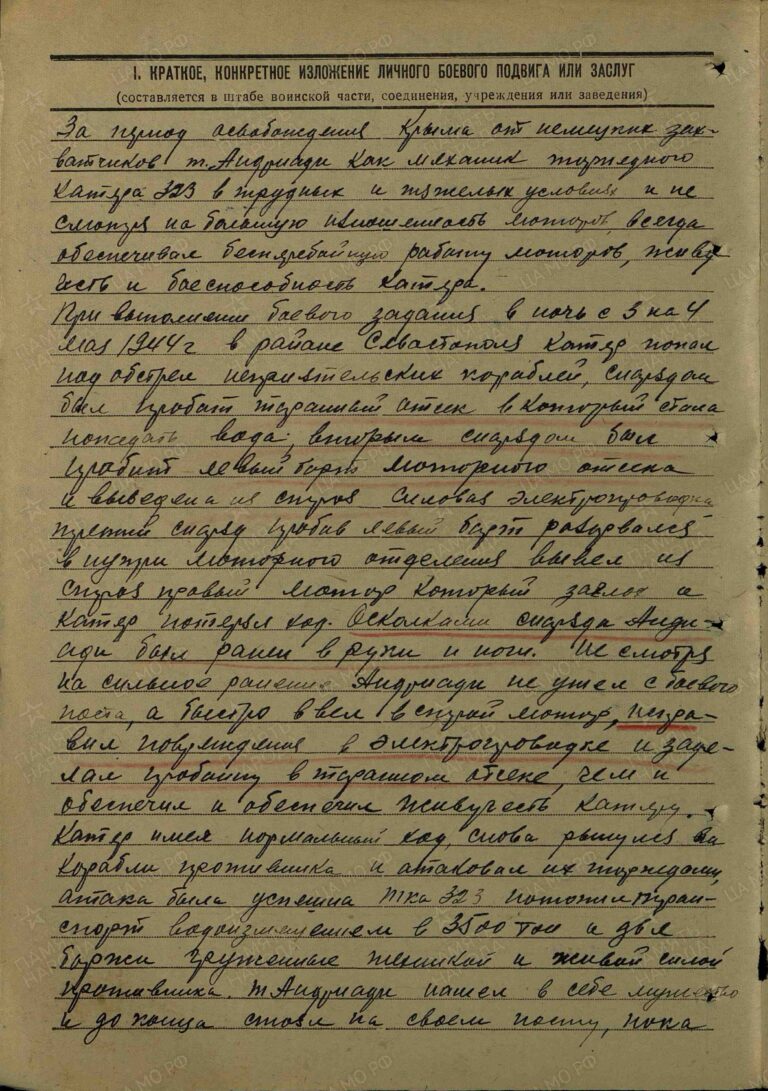 I. КРАТКОЕ, КОНКРЕТНОЕ ИЗЛОЖЕНИЕ ЛИЧНОГО БОЕВОГО ПОДВИГА ИЛИ ЗАСЛУГ
(составляется в штабе воинской части, соединения, учреждения или заведения)
За период освобождения Крыма от немецких зах-
ватчиков т. Андриади как механик торпедного
катера 323 в трудных и тяжелых условиях и не
смотря на большую изношенность моторов, всегда
обеспечивал бесперебойную работу моторов, живу
честь и боеспособность катера.
При выполнении боевого задания в ночь с 3 на 4
мая 1944 г в районе Севастополя катер попал
под обстрел неприятельских кораблей, снарядом
был пробит таранный отсек в который стала
попадать вода, вторым снарядом был
пробит левый борт моторного отсека
и выведена из строя силовая электропроводка
третий снаряд пробив левый борт разорвался
в нутри моторного отделения вывел из
строя правый мотор который заглох и
катер потерял ход. Осколками снаряда Андри-
ади был ранен в руки и ноги. Не смотря
на сильное ранение Андриади не ушел с боевого
поста, а быстро ввел в строй мотор, испра-
вил повреждения в электропроводке и заде-
лал пробоину в таранном отсеке, чем и
обеспечил и обеспечил живучесть катеру.
Катер имея нормальный ход, снова ринулся на
корабли противника и атаковал их торпедами,
атака была успешна ТКА 323 потопил тран-
спорт водоизмещением в 3500 тон и две
баржи груженные техникой и живой силой
противника. т Андриади нашел в себе мужество
и до конца стоял на своем посту, пока